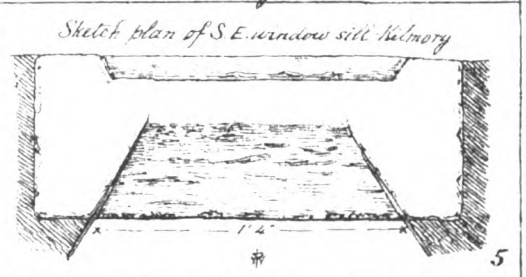 Sketch plan of S.E. window sill Kilmory
1' 4"
5